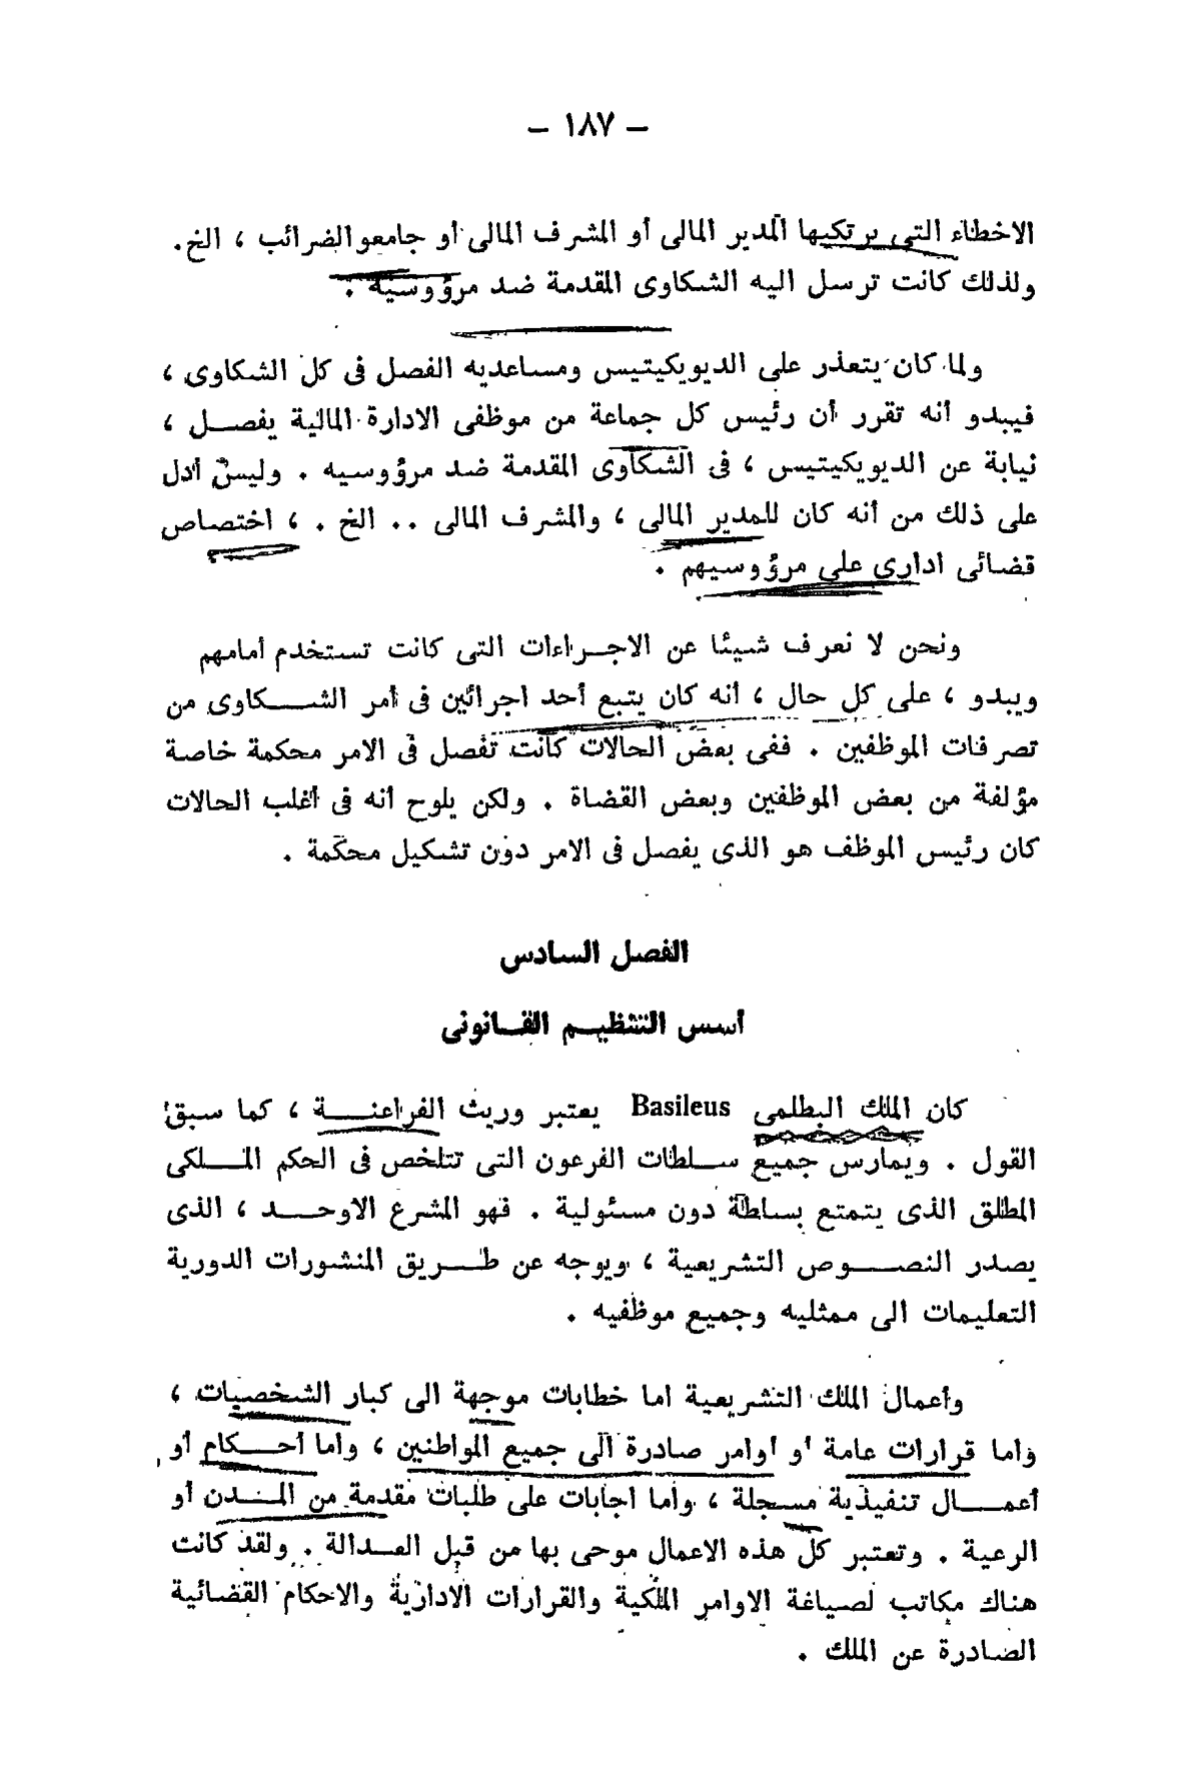 — ١٨٧ —
الاخطاء التى يرتكبها المدير المالى أو المشرف المالى أو جامعو الضرائب ، الخ .
ولذلك كانت ترسل اليه الشكاوى المقدمة ضد مرؤوسيه .
ولما كان يتعذر على الديويكيتيس ومساعديه الفصل فى كل الشكاوى ،
فيبدو أنه تقرر أن رئيس كل جماعة من موظفى الادارة المالية يفصل ،
نيابة عن الديويكيتيس ، فى الشكاوى المقدمة ضد مرؤوسيه . وليس أدل
على ذلك من أنه كان للمدير المالى ، والمشرف المالى .. الخ . ، اختصاص
قضائى ادارى على مرؤوسيهم .
ونحن لا نعرف شيئا عن الاجراءات التى كانت تستخدم أمامهم
ويبدو ، على كل حال ، أنه كان يتبع أحد اجرائين فى أمر الشكاوى من
تصرفات الموظفين . ففى بعض الحالات كانت تفصل فى الامر محكمة خاصة
مؤلفة من بعض الموظفين وبعض القضاة . ولكن يلوح أنه فى أغلب الحالات
كان رئيس الموظف هو الذى يفصل فى الامر دون تشكيل محكمة .
الفصل السادس
أسس التنظيم القانونى
كان الملك البطلمى Basileus يعتبر وريث الفراعنة ، كما سبق
القول . ويمارس جميع سلطات الفرعون التى تتلخص فى الحكم الملكى
المطلق الذى يتمتع بسلطة دون مسئولية . فهو المشرع الاوحد ، الذى
يصدر النصوص التشريعية ، ويوجه عن طريق المنشورات الدورية
التعليمات الى ممثليه وجميع موظفيه .
وأعمال الملك التشريعية اما خطابات موجهة الى كبار الشخصيات ،
واما قرارات عامة أو أوامر صادرة الى جميع المواطنين ، واما أحكام أو
أعمال تنفيذية مسجلة ، واما اجابات على طلبات مقدمة من المدن أو
الرعية . وتعتبر كل هذه الاعمال موحى بها من قبل العدالة . ولقد كانت
هناك مكاتب لصياغة الاوامر الملكية والقرارات الادارية والاحكام القضائية
الصادرة عن الملك .